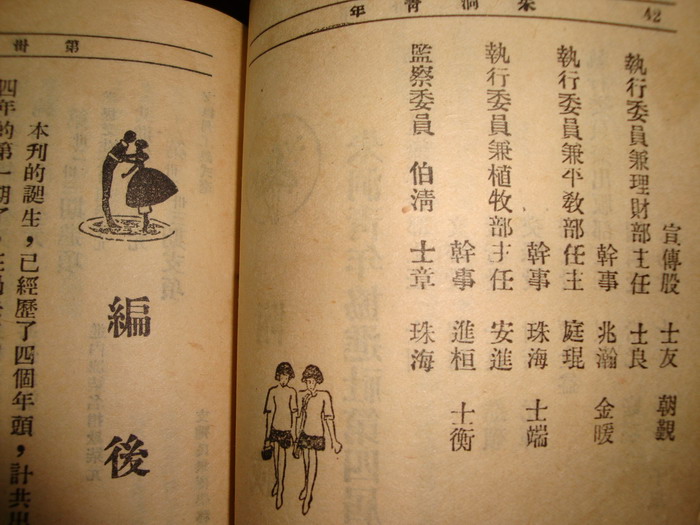 42
洞青年
宣傳股 士友 朝觀
執行委員兼理財部主任 士良
幹事 兆瀚 金暖
執行委員兼平敎部任主 庭琨
幹事 珠海 士端
執行委員兼植牧部主任 安進
幹事 進桓 士衡
監察委員 伯清 士章 珠海
第卅
編後
本刊的誕生，已經歷了四個年頭，計共出
四年的第一期了，在